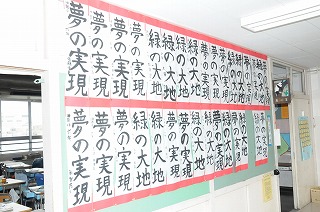 夢の実現
夢の実現
夢の実現
夢の実現
緑の大地
緑の大地
緑の大地
緑の大地
夢の実現
夢の実現
夢の実現
緑の大地
緑の大地
夢の実現
夢の実現
夢の実現
緑の大地
緑の大地
夢の実現
夢の実現
緑の大地
夢の実現
緑の大地
夢の実現
緑の大地